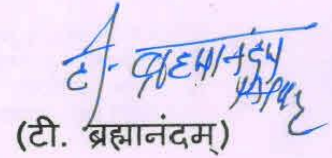 टी. ब्रह्मानंदम
(टी. ब्रह्मानंदम्)